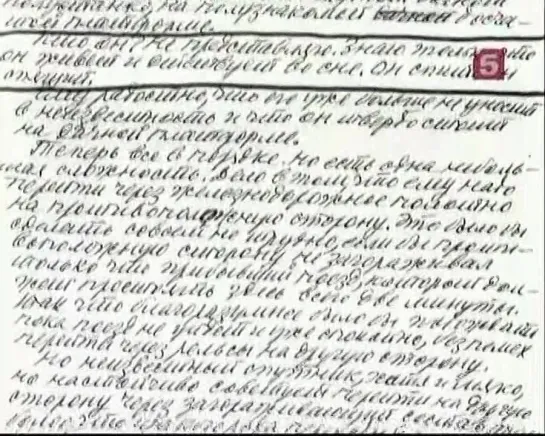 на полузнакомой
шой платформе.
Кто он? Не представляю. Знаю только, что
он живёт и действует во сне. Он спит. Он
спящий.
5
Ему радостно, что его уже больше не уносит
в неизвестность и что он твёрдо стоит
на дачной платформе.
Теперь всё в порядке. Но есть одна неболь-
шая сложность. Дело в том, что ему надо
перейти через железнодорожное полотно
на противоположную сторону. Это было бы
сделать совсем не трудно, если бы проти-
воположную сторону не загораживал
только что прибывший поезд, который дол-
жен простоять здесь всего две минуты.
Так что благоразумнее было бы подождать
пока поезд не уйдёт и уже спокойно, без помех
перейти через рельсы на другую сторону.
Но неизвестный спутник, хотя и мягко,
но настойчиво советует перейти на другую
сторону через загораживающий состав